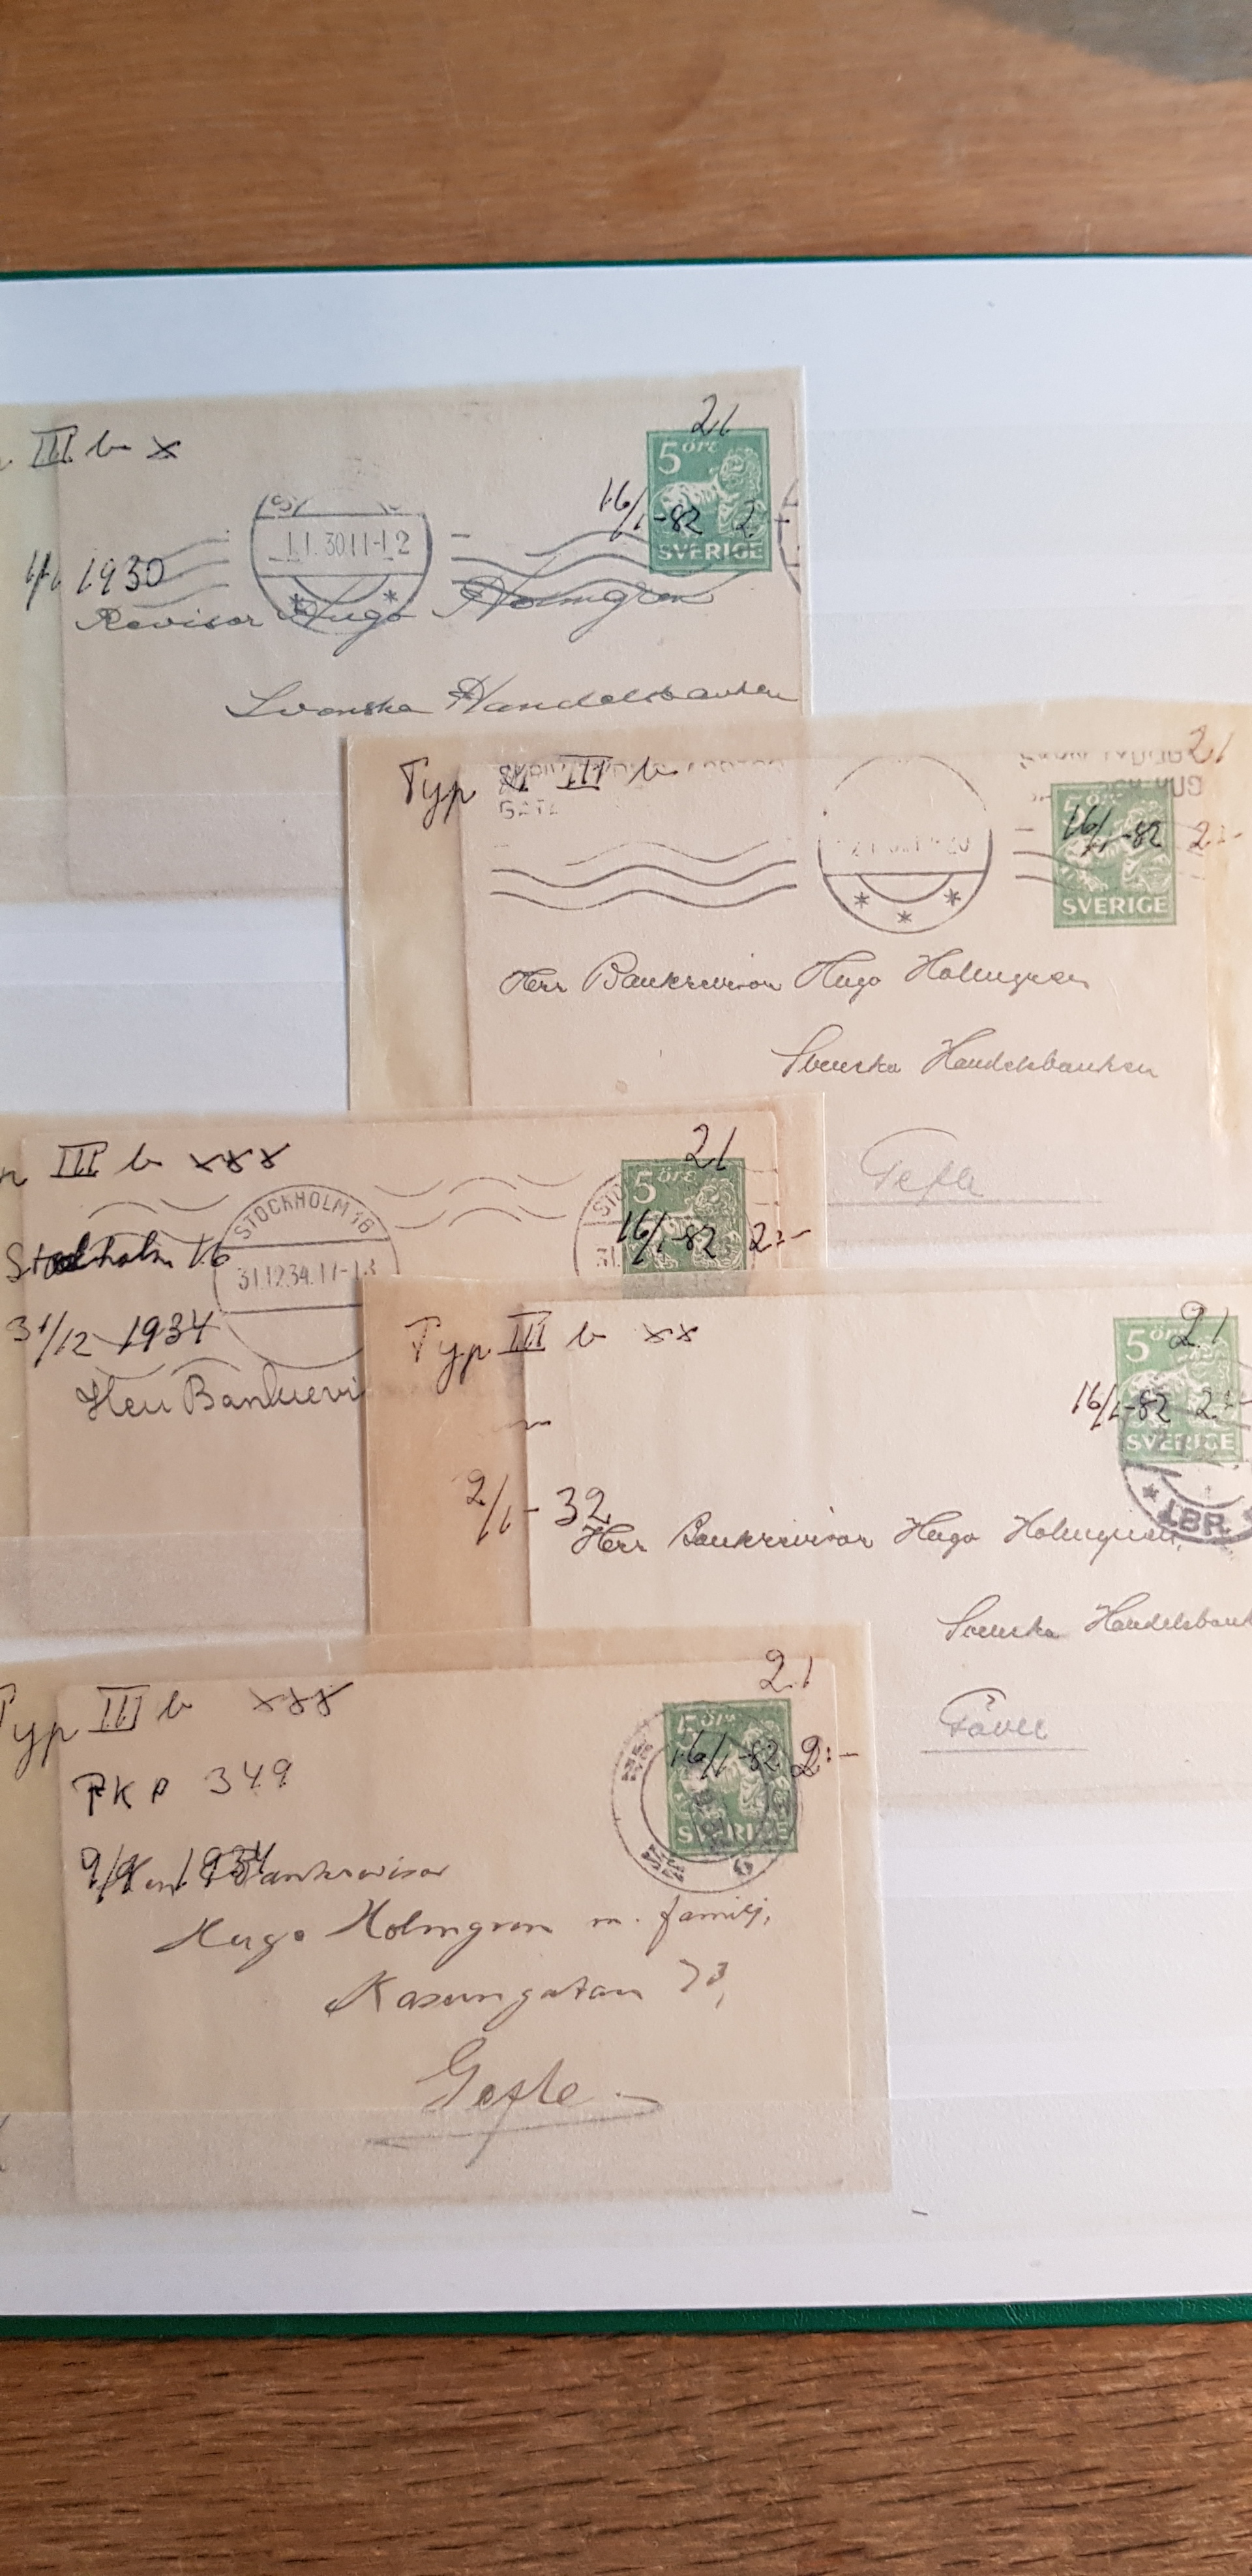 III b x
21
5 öre
16/1-82 2
SVERIGE
1.1.30 11-12
1/1 1930
Revisor Hugo Holmgren
Svenska Handelsbanken
Typ III b
21
GATA
5 öre
16/1-82 2:-
SVERIGE
Herr Bankrevisor Hugo Holmgren
Svenska Handelsbanken
Gefle
III b xxx
21
STOCKHOLM 16
5 öre
16/1-82 2:-
Stockholm 16
31.12.34.17-18
31.
31/12 1934
Herr Bankrevi
Typ III b xx
21
5 öre
16/1-82 2:-
SVERIGE
2/1-32
LBR.
Herr Bankrevisor Hugo Holmgren,
Svenska Handelsbank
Gävle
Typ III b xxx
21
5 öre
PKP 349
16/1-82 2:-
SVERIGE
9/9 1934
Bankrevisor
Hugo Holmgren m. familj,
Kaserngatan 73,
Gefle